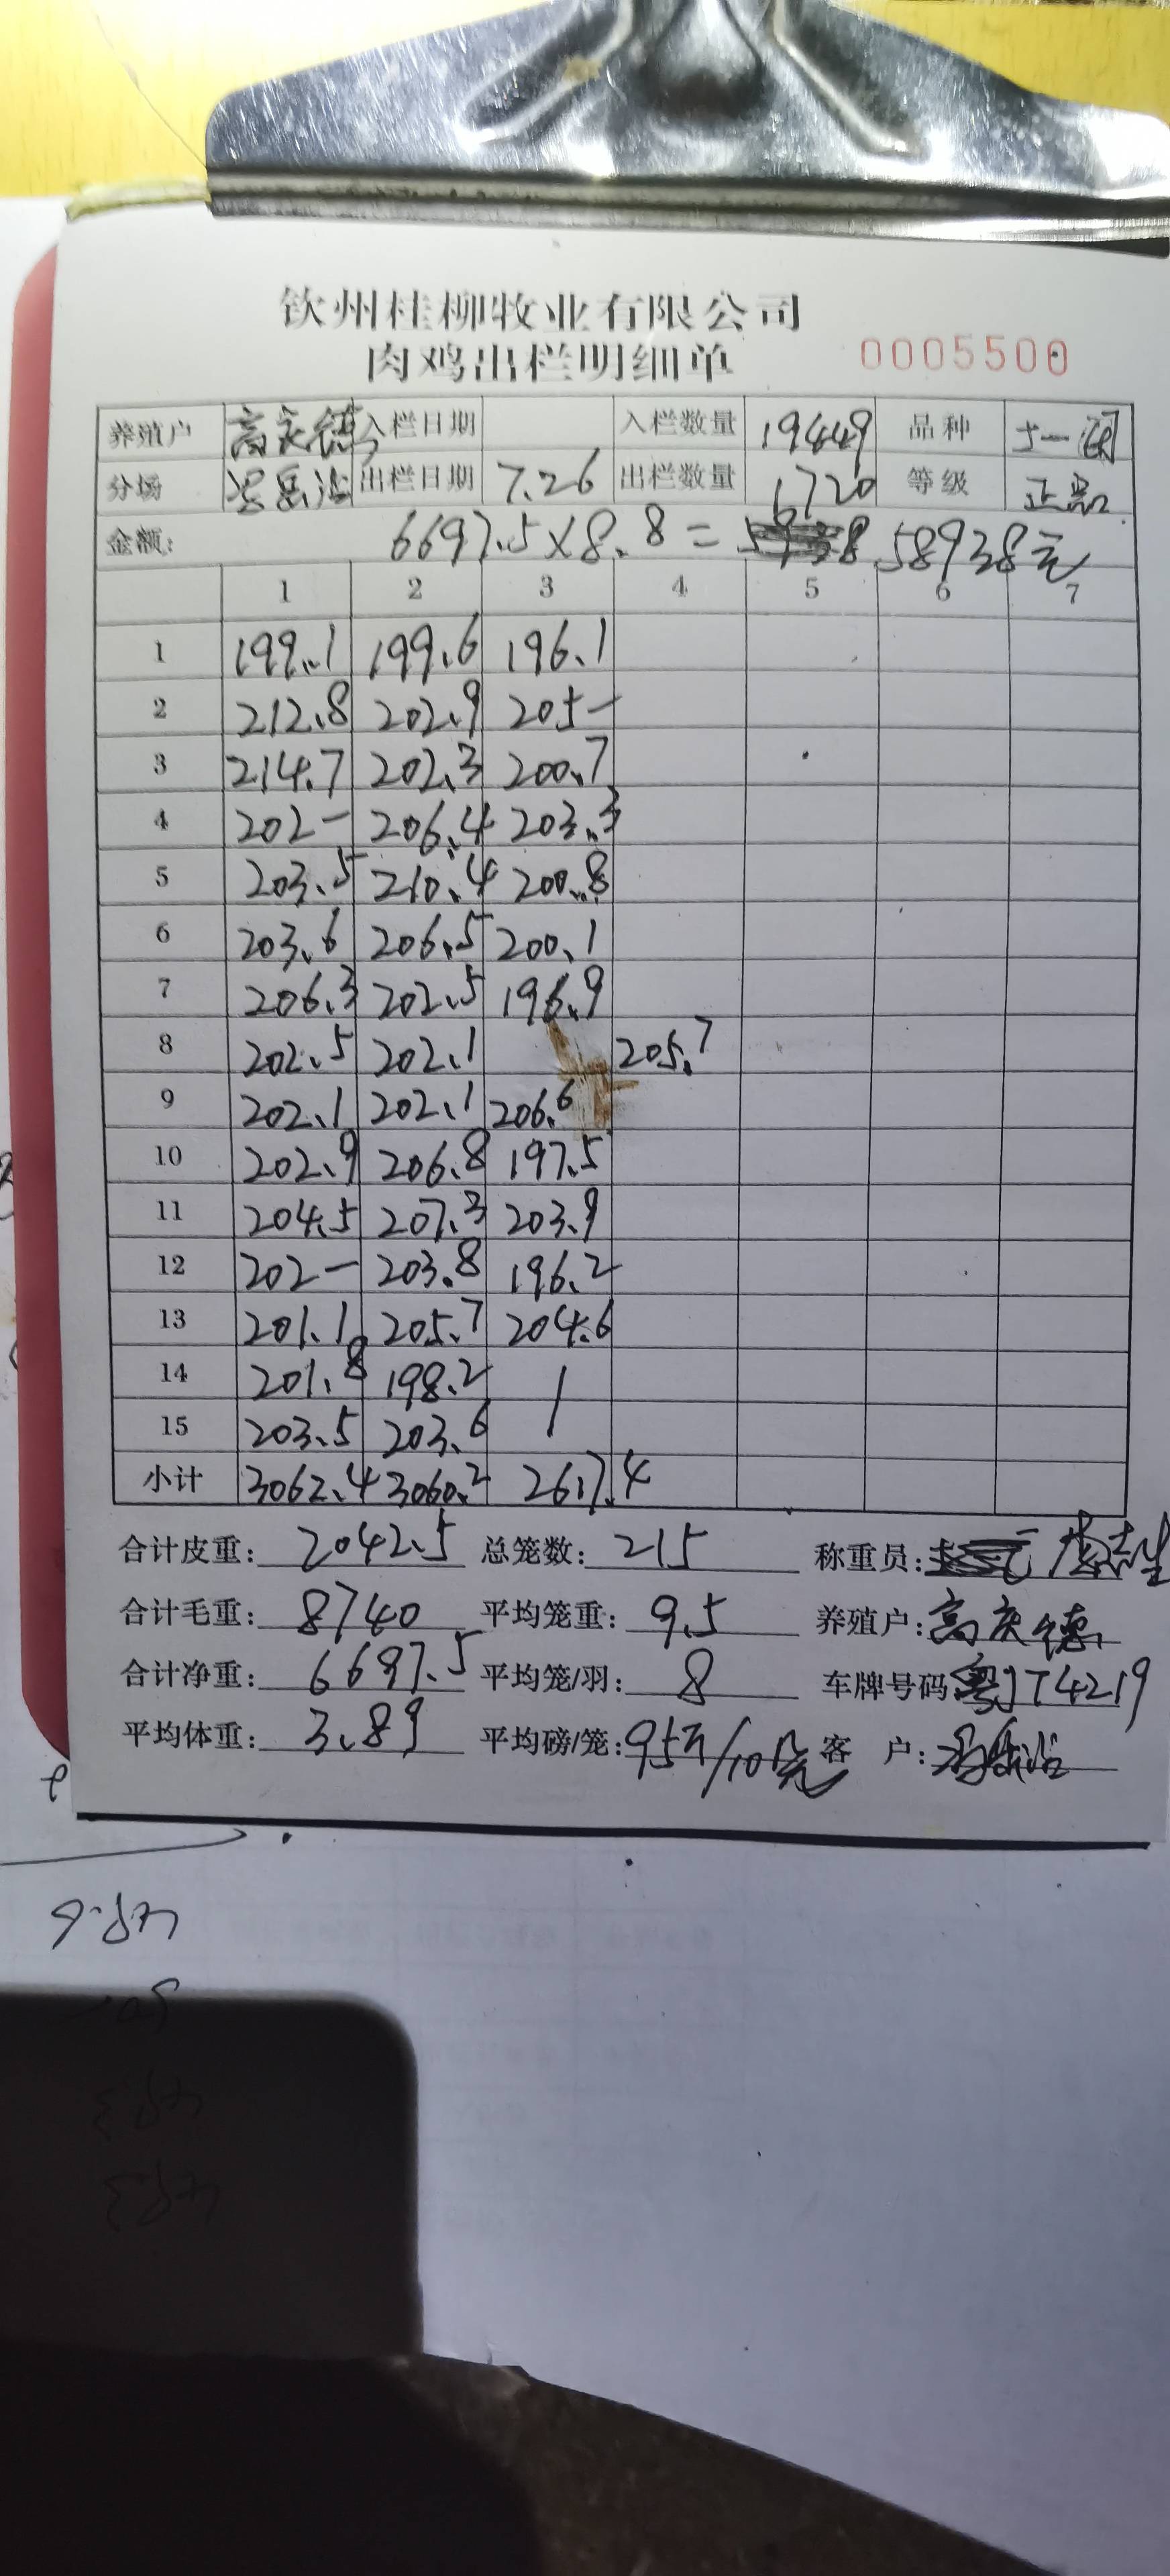 钦州桂柳牧业有限公司
肉鸡出栏明细单 0005500
养殖户 高庆德 入栏日期 入栏数量 19449 品种 土一
分场 出栏日期 7.26 出栏数量 1720 等级 正品
金额: 6697.5×8.8= 58938元
1 2 3 4 5 6 7
1 199.1 199.6 196.1
2 212.8 202.9 205-
3 214.7 202.3 200.7
4 202- 206.4 203.3
5 203.5 210.4 200.8
6 203.6 206.5 200.1
7 206.3 202.5 196.9
8 202.5 202.1 205.7
9 202.1 202.1 206.6
10 202.9 206.8 197.5
11 204.5 207.3 203.9
12 202- 203.8 196.2
13 201.1 205.7 204.6
14 201.8 198.2 /
15 203.5 203.6 /
小计 3062.4 3060.2 2617.4
合计皮重: 2042.5 总笼数: 215 称重员:
合计毛重: 8740 平均笼重: 9.5 养殖户: 高庆德
合计净重: 6697.5 平均笼/羽: 8 车牌号码 粤JT4219
平均体重: 3.89 平均磅/笼: 95斤/10只 客户: